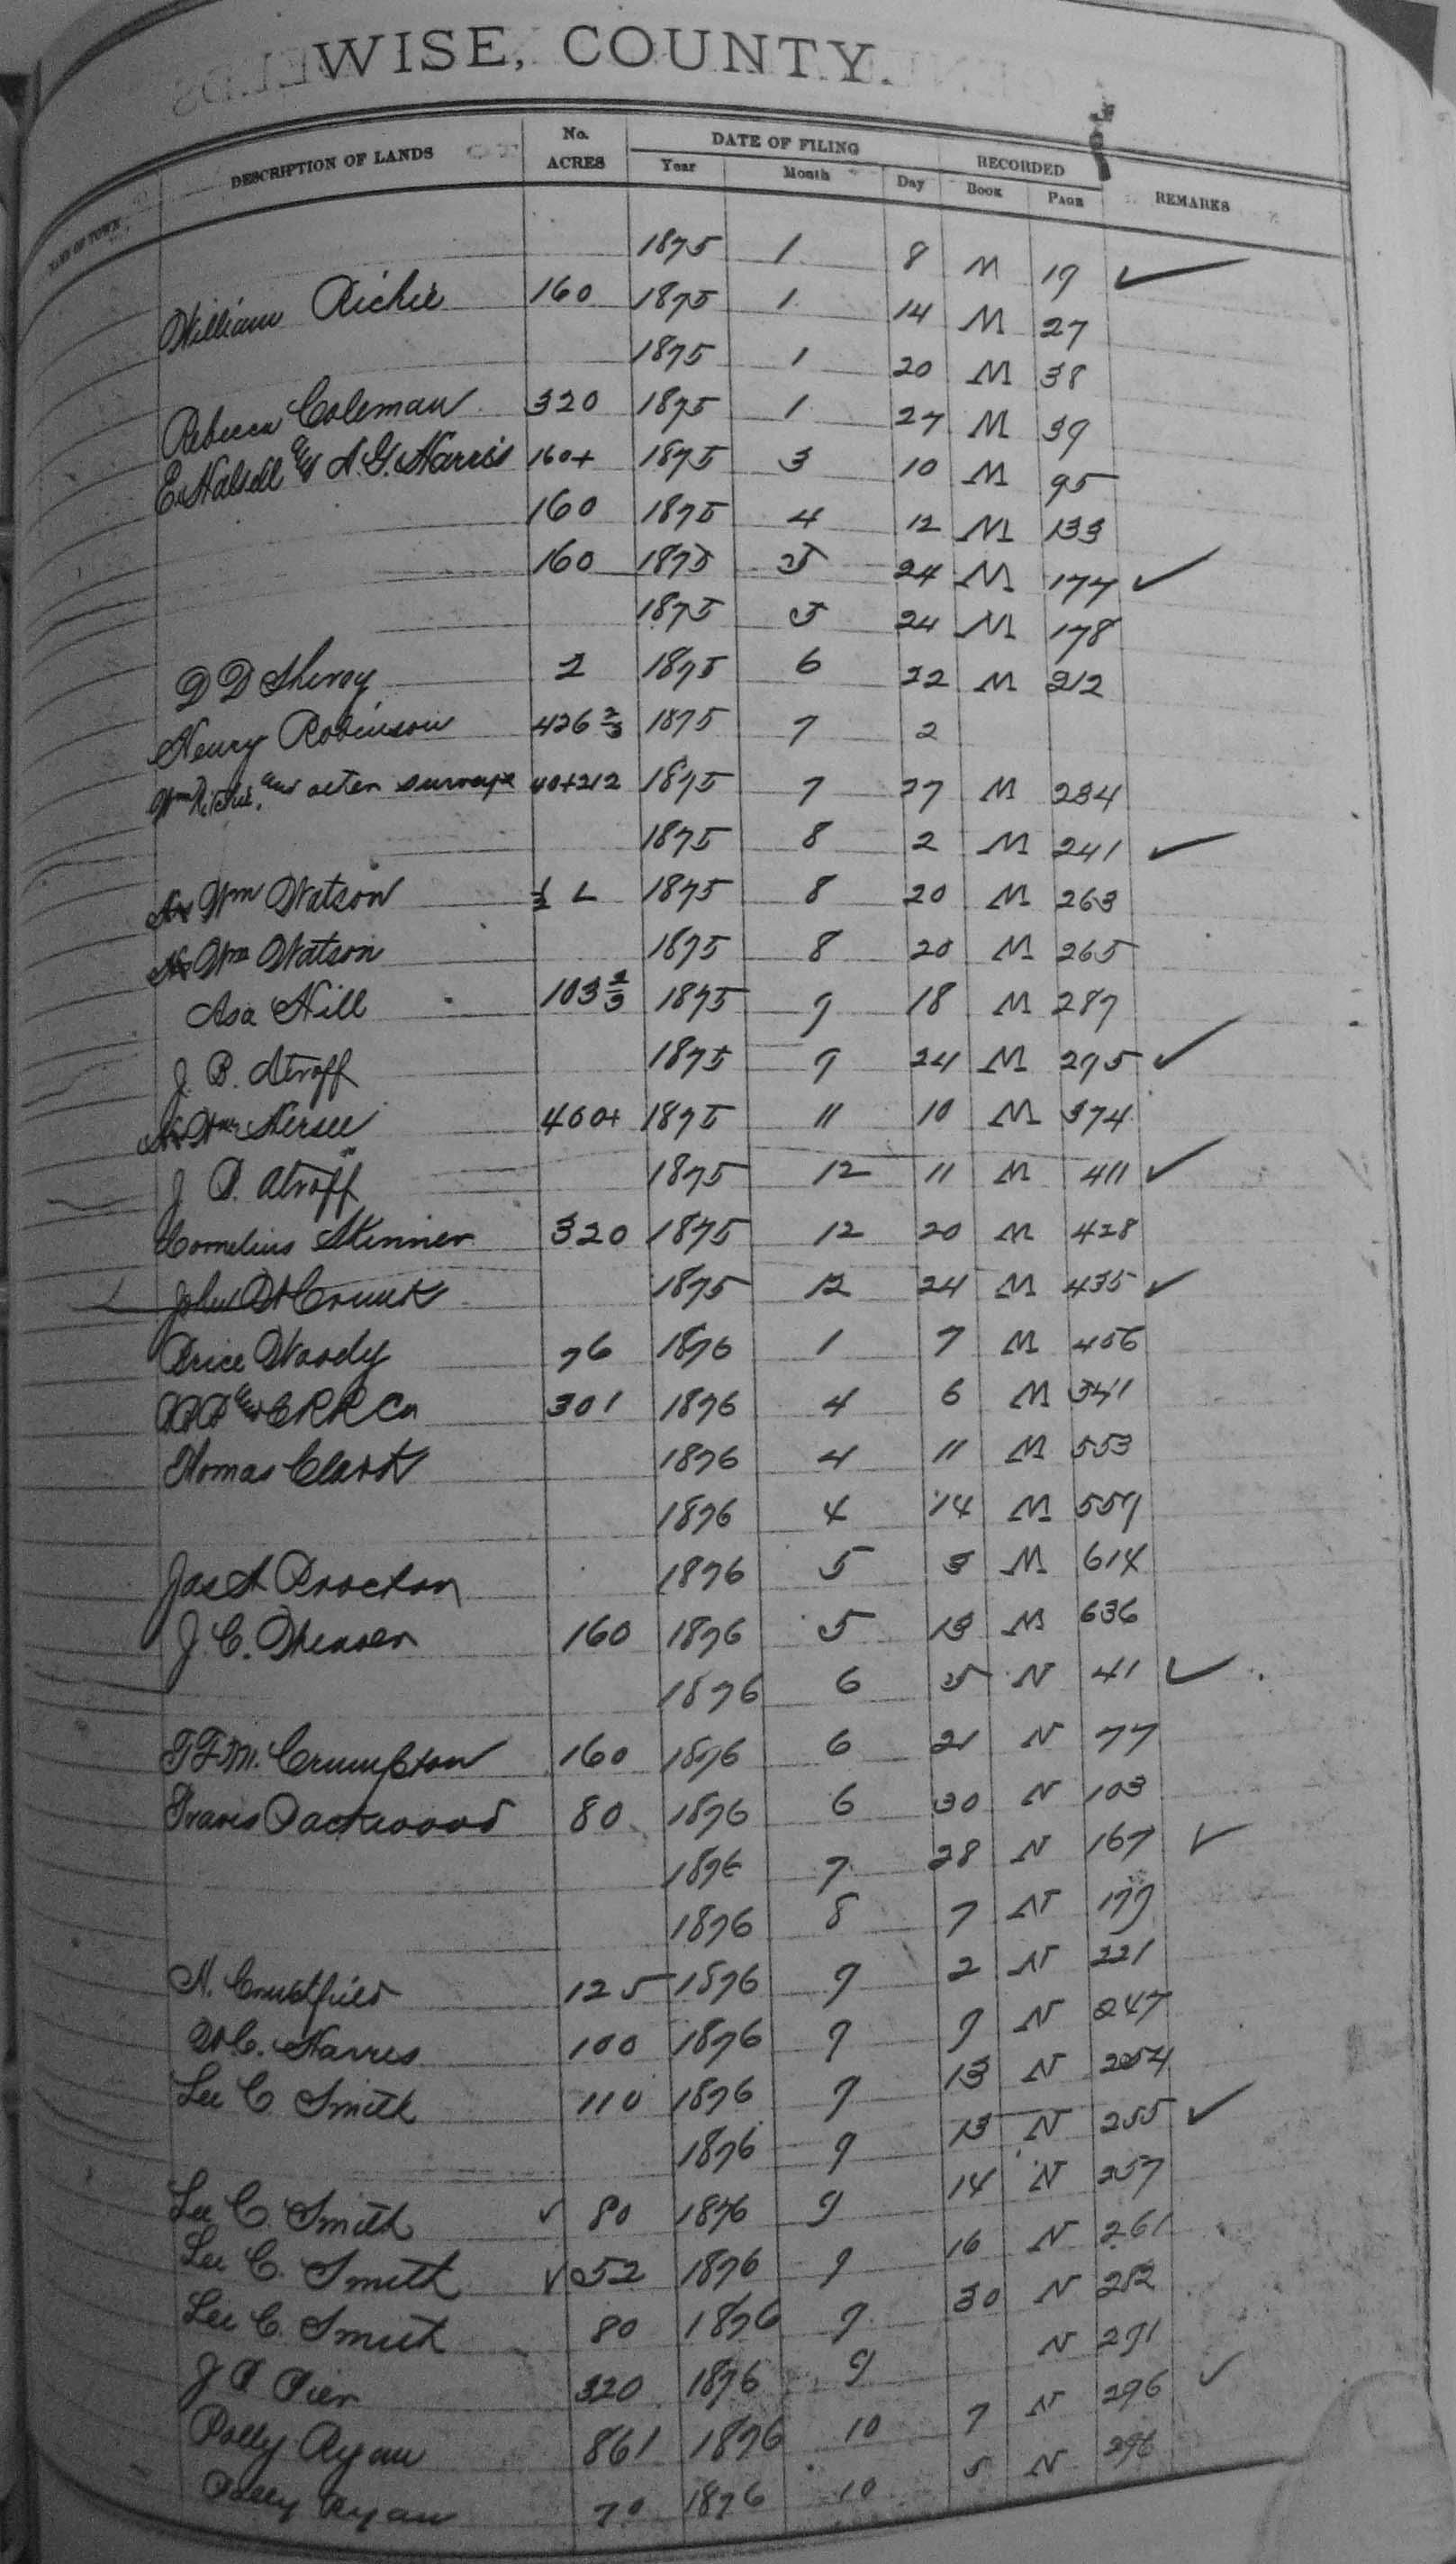 WISE, COUNTY.
NAME OF TOWN DESCRIPTION OF LANDS No. ACRES DATE OF FILING Year Month Day RECORDED Book Page REMARKS
1875 1 8 M 19 ✓
William Richie 160 1875 1 14 M 27
1875 1 20 M 38
Rebecca Coleman 320 1875 1 27 M 39
E Halsell and A.G. Harris 160+ 1875 3 10 M 95
160 1875 4 12 M 133
160 1875 5 24 M 177 ✓
1875 5 24 M 178
D D 2 1875 6 22 M 212
Henry Robinson 426 2/3 1875 7 2
Wm Richie, and other surveys 40+212 1875 7 27 M 234
1875 8 2 M 241 ✓
Wm Watson 1/2 L 1875 8 20 M 263
Wm Watson 1875 8 20 M 265
Asa Hill 103 2/3 1875 9 18 M 287
J. B. 1875 9 24 M 295 ✓
400+ 1875 11 10 M 374
J P. 1875 12 11 M 411 ✓
Cornelius Skinner 320 1875 12 20 M 428
John 1875 12 24 M 435 ✓
Price Woody 76 1876 1 7 M 456
and E R R Co 301 1876 4 6 M 341
Thomas Clark 1876 4 11 M 553
1876 4 14 M 559
Jas A Proctor 1876 5 3 M 614
J. C. 160 1876 5 13 M 636
1876 6 5 N 41 ✓
T F M. Crumpton 160 1876 6 21 N 77
Travis Packwood 80 1876 6 30 N 103
1876 7 28 N 167 ✓
1876 8 7 N 179
N. 125 1876 9 2 N 221
W C. Harris 100 1876 9 9 N 247
Lee C. Smith 110 1876 9 13 N 254
1876 9 13 N 255 ✓
Lee C. Smith ✓ 80 1876 9 14 N 257
Lee C. Smith ✓ 52 1876 9 16 N 261
Lee C. Smith 80 1876 9 30 N 282
J P Pier 320 1876 9 N 291
Polly Ryan 861 1876 10 7 N 296 ✓
Polly Ryan 70 1876 10 5 N 296